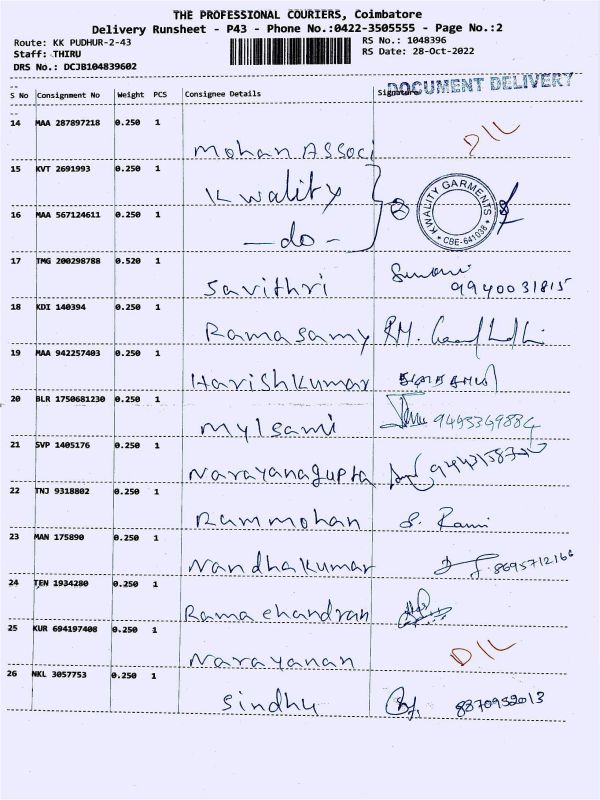 THE PROFESSIONAL COURIERS, Coimbatore
Delivery Runsheet - P43 - Phone No.:0422-3505555 - Page No.:2
Route: KK PUDHUR-2-43 RS No.: 1048396
Staff: THIRU RS Date: 28-Oct-2022
DRS No.: DCJB104839602
DOCUMENT DELIVERY
S No Consignment No Weight PCS Consignee Details Signature
14 MAA 287897218 0.250 1
Mohan Associ DIL
15 KVT 2691993 0.250 1
Kwality
KWALITY GARMENTS
* CBE-641038 *
16 MAA 567124611 0.250 1
— do - 
17 TMG 200298788 0.520 1
Savithri 9940031815
18 KDI 140394 0.250 1
Ramasamy
19 MAA 942257403 0.250 1
Harishkumar
20 BLR 1750681230 0.250 1
Mylsami
21 SVP 1405176 0.250 1
Narayanagupta
22 TNJ 9318802 0.250 1
Rammohan
23 MAN 175890 0.250 1
Nandhakumar 8695712166
24 TEN 1934280 0.250 1
Ramachandran
25 KUR 694197408 0.250 1
Narayanan DIL
26 NKL 3057753 0.250 1
Sindhu 8870952013